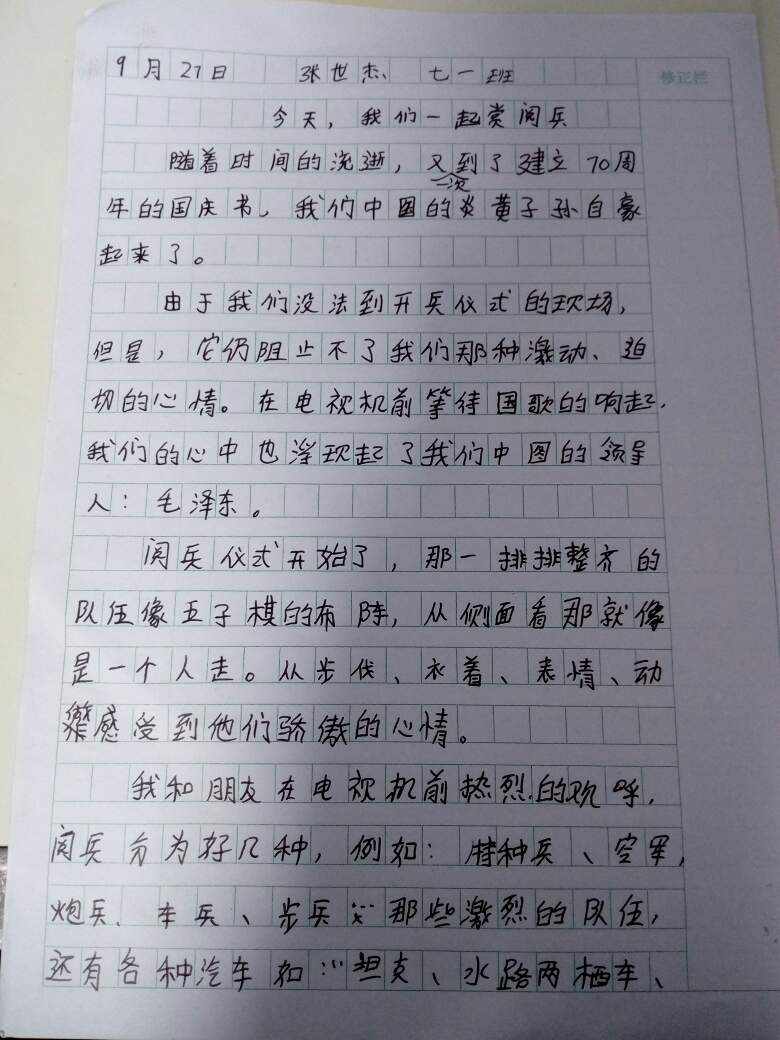 9月27日 张世杰 七一班
修正栏
今天，我们一起赏阅兵
随着时间的浇逝，又一次到了建立70周
年的国庆书，我们中国的炎黄子孙自豪
起来了。
由于我们没法到开兵仪式的现场，
但是，它仍阻止不了我们那种激动、迫
切的心情。在电视机前等待国歌的响起，
我们的心中也浮现起了我们中国的领导
人：毛泽东。
阅兵仪式开始了，那一排排整齐的
队伍像五子棋的布阵，从侧面看那就像
是一个人走。从步伐、衣着、表情、动
感受到他们骄傲的心情。
我和朋友在电视机前热烈的欢呼，
阅兵分为好几种，例如：特种兵、空军，
炮兵、车兵、步兵……那些激烈的队伍，
还有各种汽车如：坦克、水路两栖车、